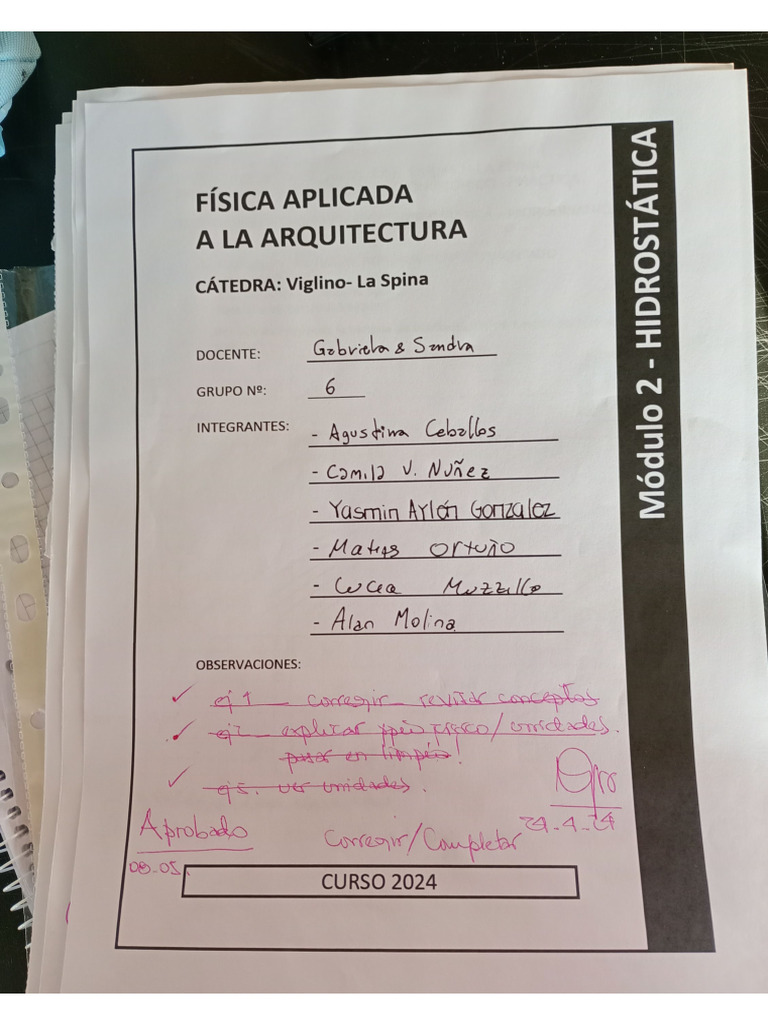 FÍSICA APLICADA
A LA ARQUITECTURA
CÁTEDRA: Viglino- La Spina
DOCENTE: Gabriela & Sandra
GRUPO Nº: 6
INTEGRANTES: - Agustina Ceballos
- Camila V. Nuñez
- Yasmin Aylén Gonzalez
- Matias Ortuño
- Lucca Muzzillo
- Alan Molina
OBSERVACIONES:
ej 1 _ corregir _ revisar conceptos
ej2 _ explicar /unidades.
pasar en limpio!
ej5. ver unidades.
24.4.24
Aprobado
Corregir/Completar
08-05.
CURSO 2024
Módulo 2 - HIDROSTÁTICA